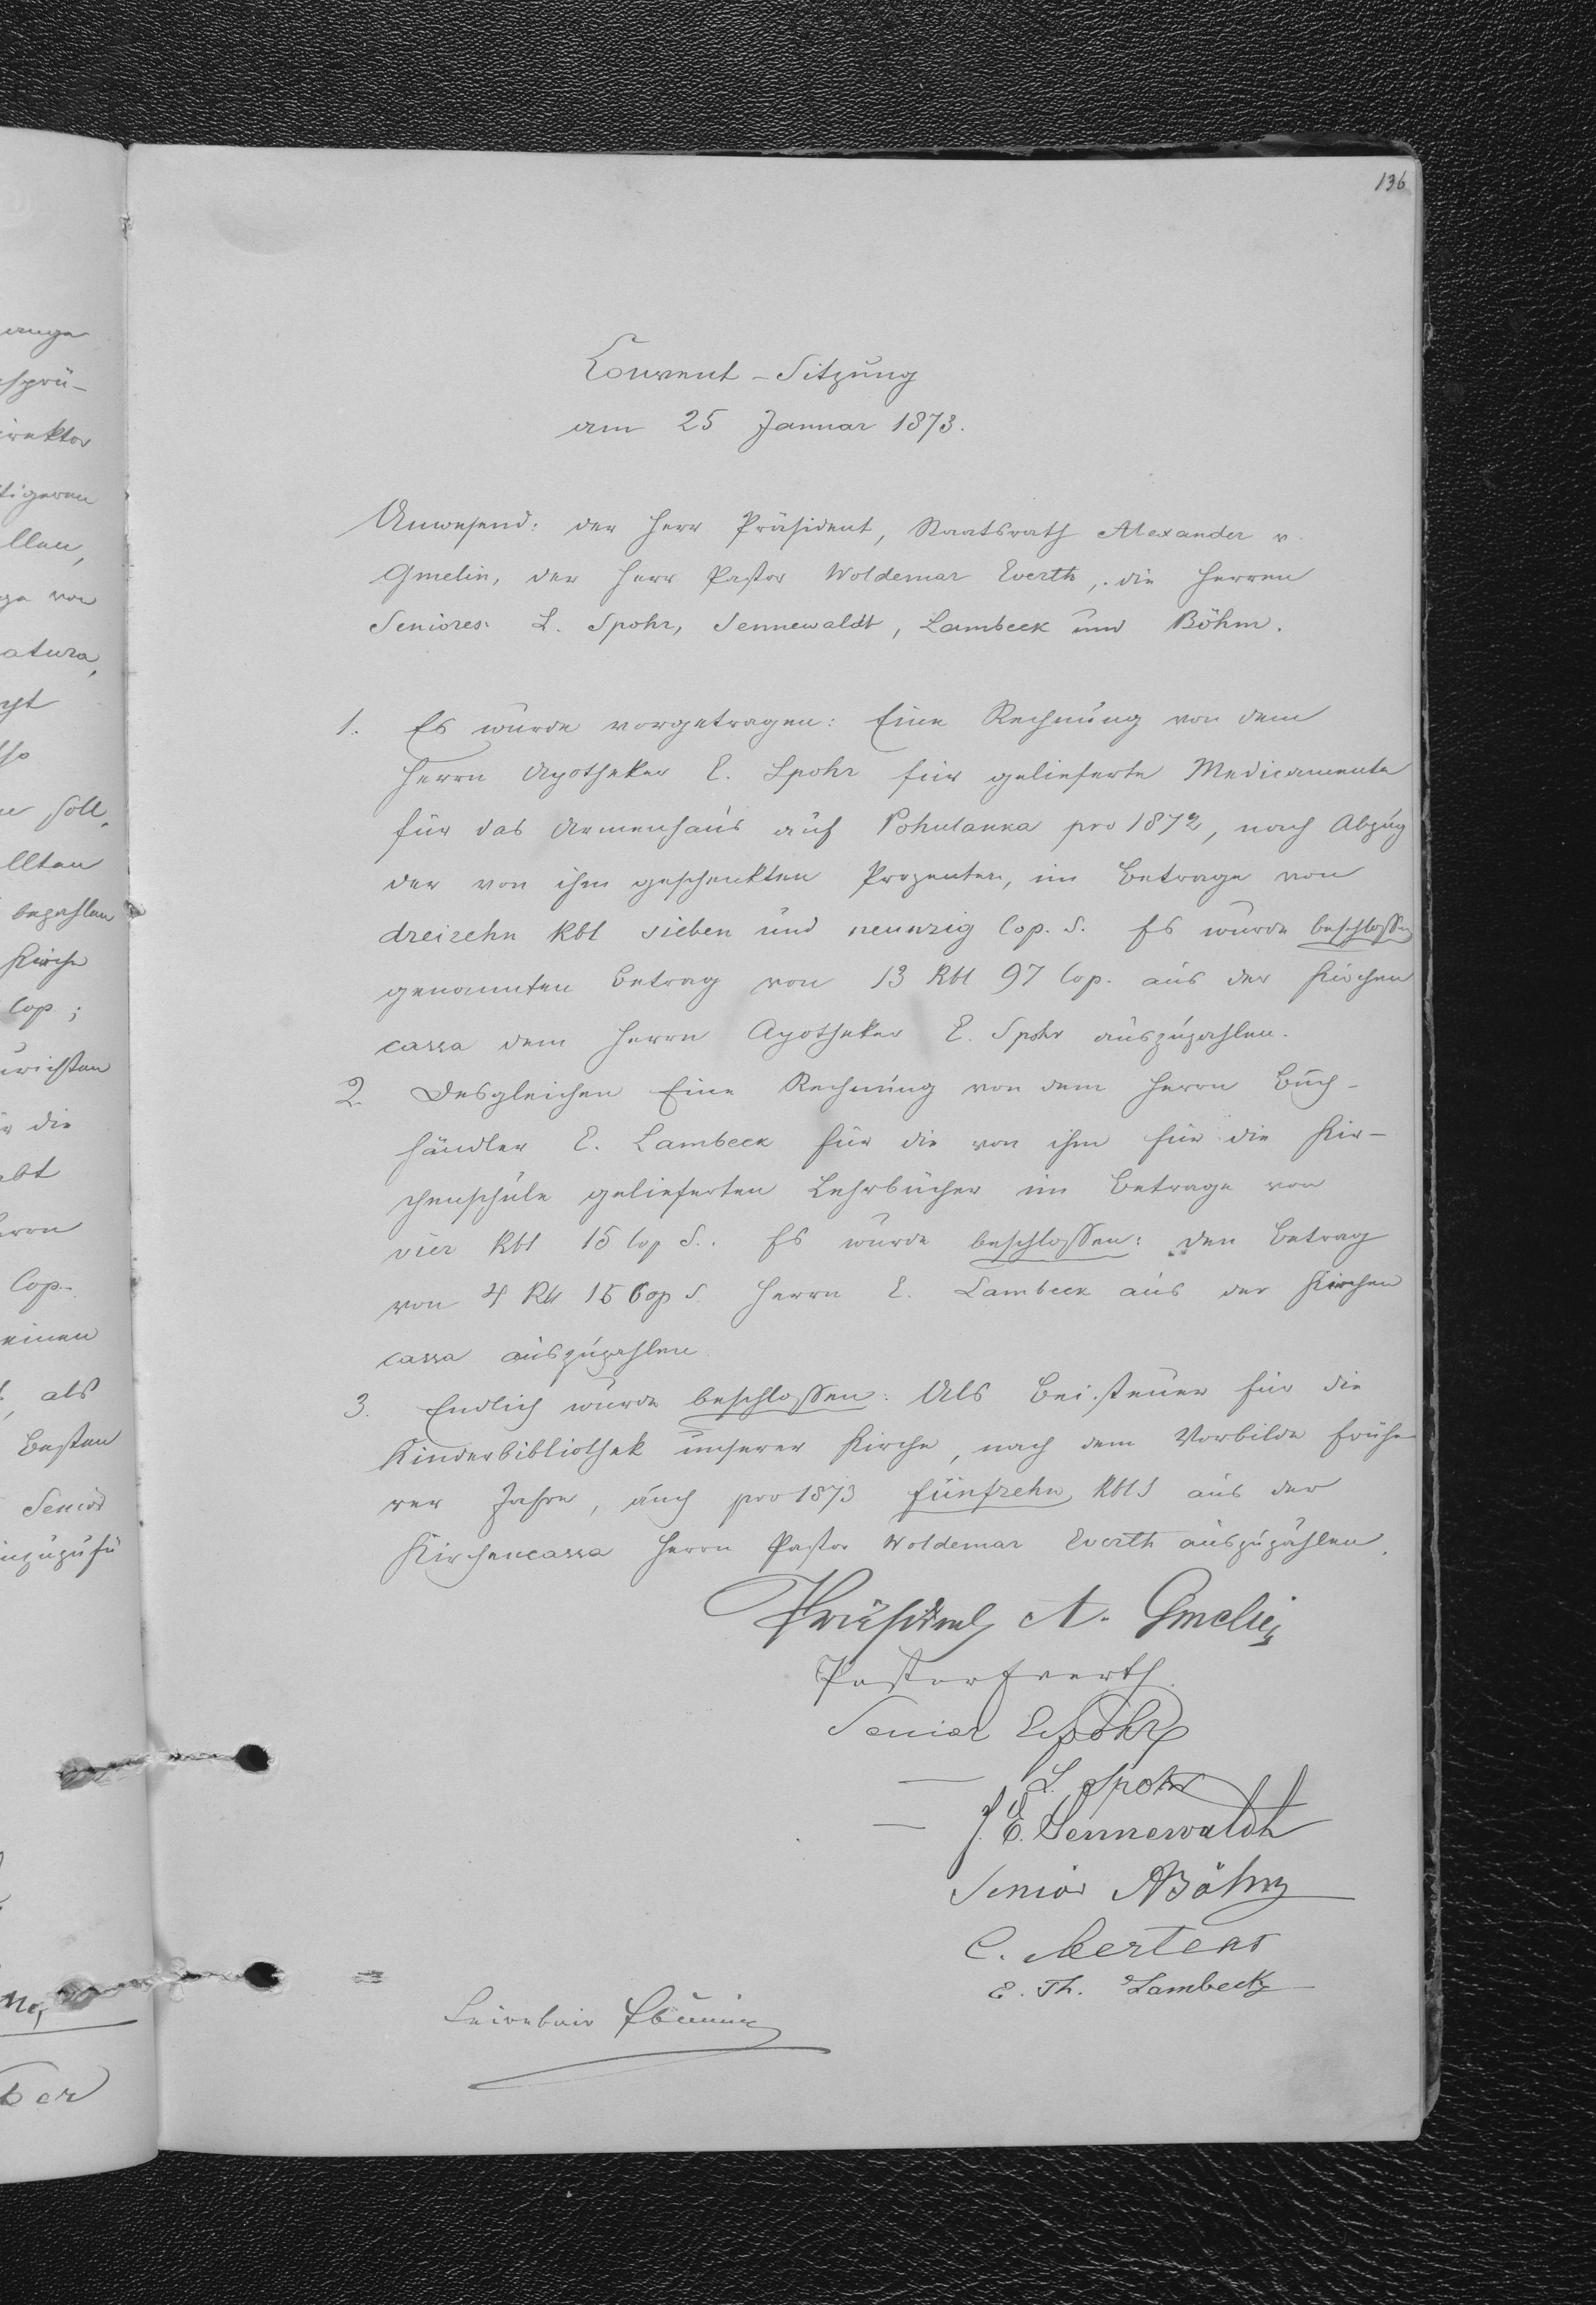 136
Convent-Sitzung
am 25 Januar 1873.
Anwesend: der Herr Präsident, Staatsrath Alexander v.
Gmelin, der Herr Pastor Woldemar Everth, die Herren
Seniores: L. Spohr, Sennewaldt, Lambeck und Böhm.
1. Es wurde vorgetragen: Eine Rechnung von dem
Herrn Apotheker E. Spohr für gelieferte Medicamente
für das Armenhaus auf Pohulanka pro 1872, nach Abzug
der von ihm geschenkten Prozenten, im Betrage von
dreizehn Rbl sieben und neunzig Cop. S. Es wurde beschlossen
genannten Betrag von 13 Rbl 97 Cop. aus der Kirchen
cassa dem Herrn Apotheker E. Spohr auszuzahlen.
2. Desgleichen Eine Rechnung von dem Herrn Buch-
händler E. Lambeck für die von ihm für die Kir-
chenschule gelieferten Lehrbücher im Betrage von
vier Rbl 15 Cop S. Es wurde beschlossen: den Betrag
von 4 Rbl 15 Cop S. Herrn E. Lambeck aus der Kirchen
cassa auszuzahlen.
3. Endlich wurde beschlossen: Als Beisteuer für die
Kinderbibliothek unserer Kirche, nach dem Vorbilde frühe
rer Jahre, auch pro 1873 fünfzehn Rbl S aus der
Kirchencassa Herrn Pastor Woldemar Everth auszuzahlen.
Präsident A. Gmelin
Pastor Everth.
Senior E Spohr
— L. Spohr
— J. E. Sennewaldt
Senior A Böhm
C. Mertens
E. Th. Lambeck
anga
esprü-
irektor
tigeren
llen,
von
atura,
soll,
llten
bezahlen
Kirche
Cop;
die
Cop.
einen
als
Besten
Senior